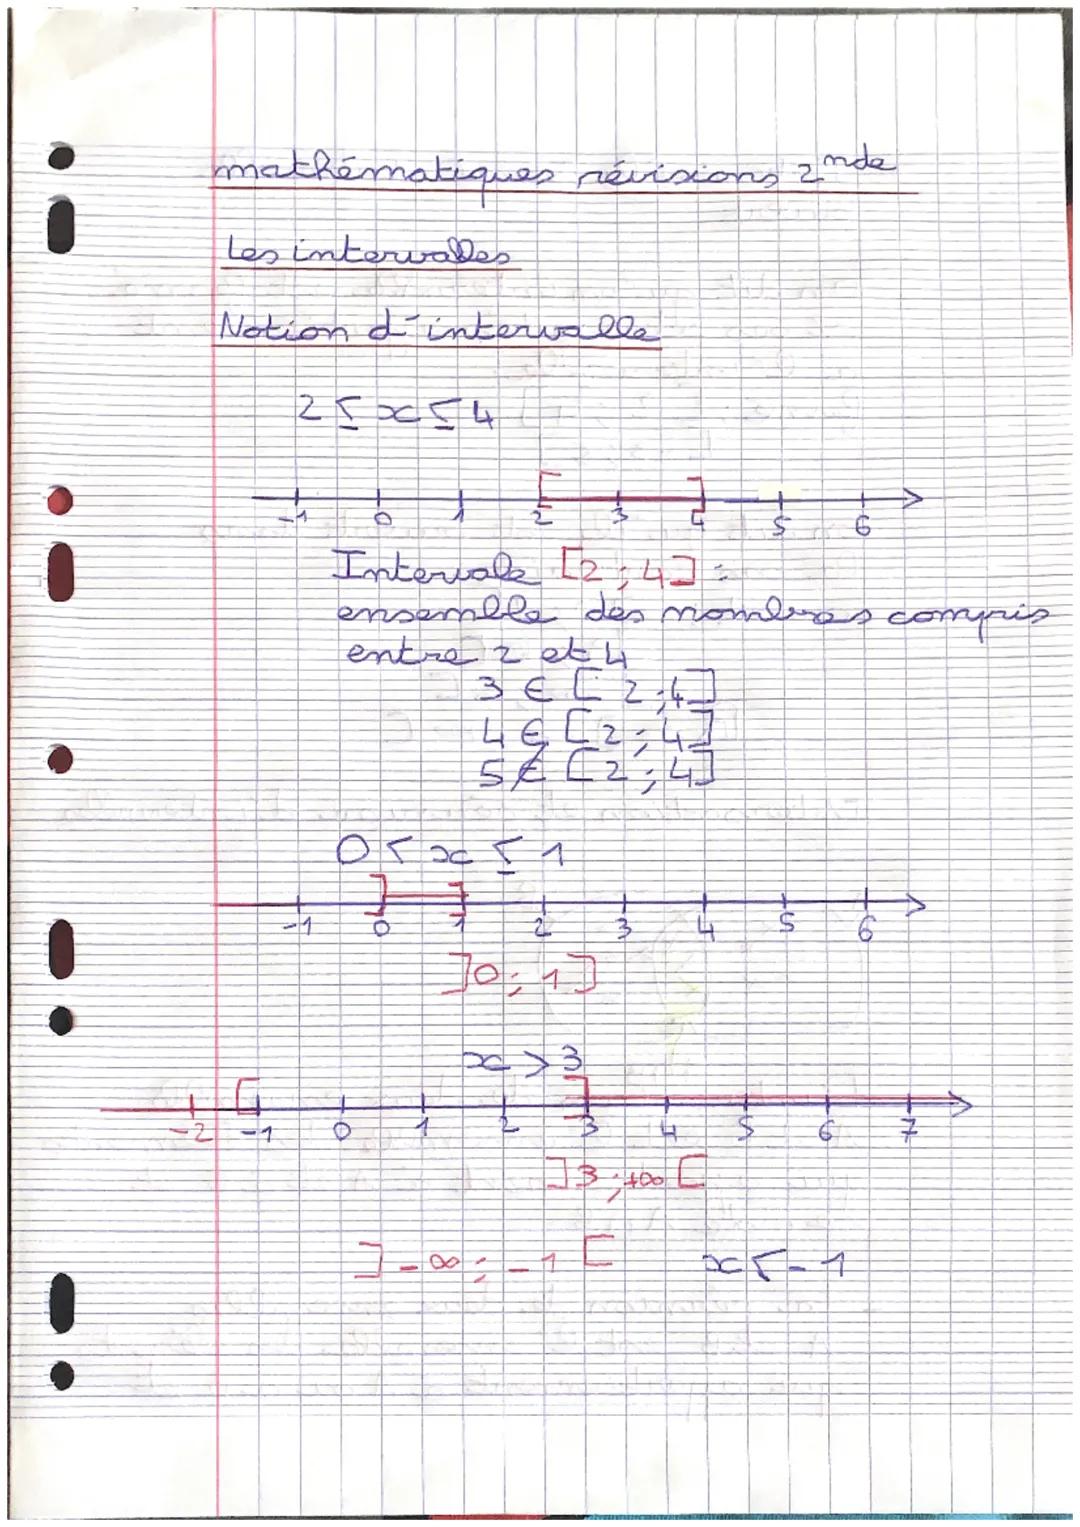 mathématiques révisions 2nde
Les intervalles
Notion d'intervalle
2 ≤ x ≤ 4
-1 0 1 2 3 4 5 6
Intervale [2 ; 4] :
ensemble des nombres compris
entre 2 et 4
3 ∈ [2 ; 4]
4 ∈ [2 ; 4]
5 ∉ [2 ; 4]
0 < x ≤ 1
-1 0 1 2 3 4 5 6
]0 ; 1]
x > 3
-2 -1 0 1 2 3 4 5 6 7
]3 ; +∞[
]-∞ ; -1[ x < -1